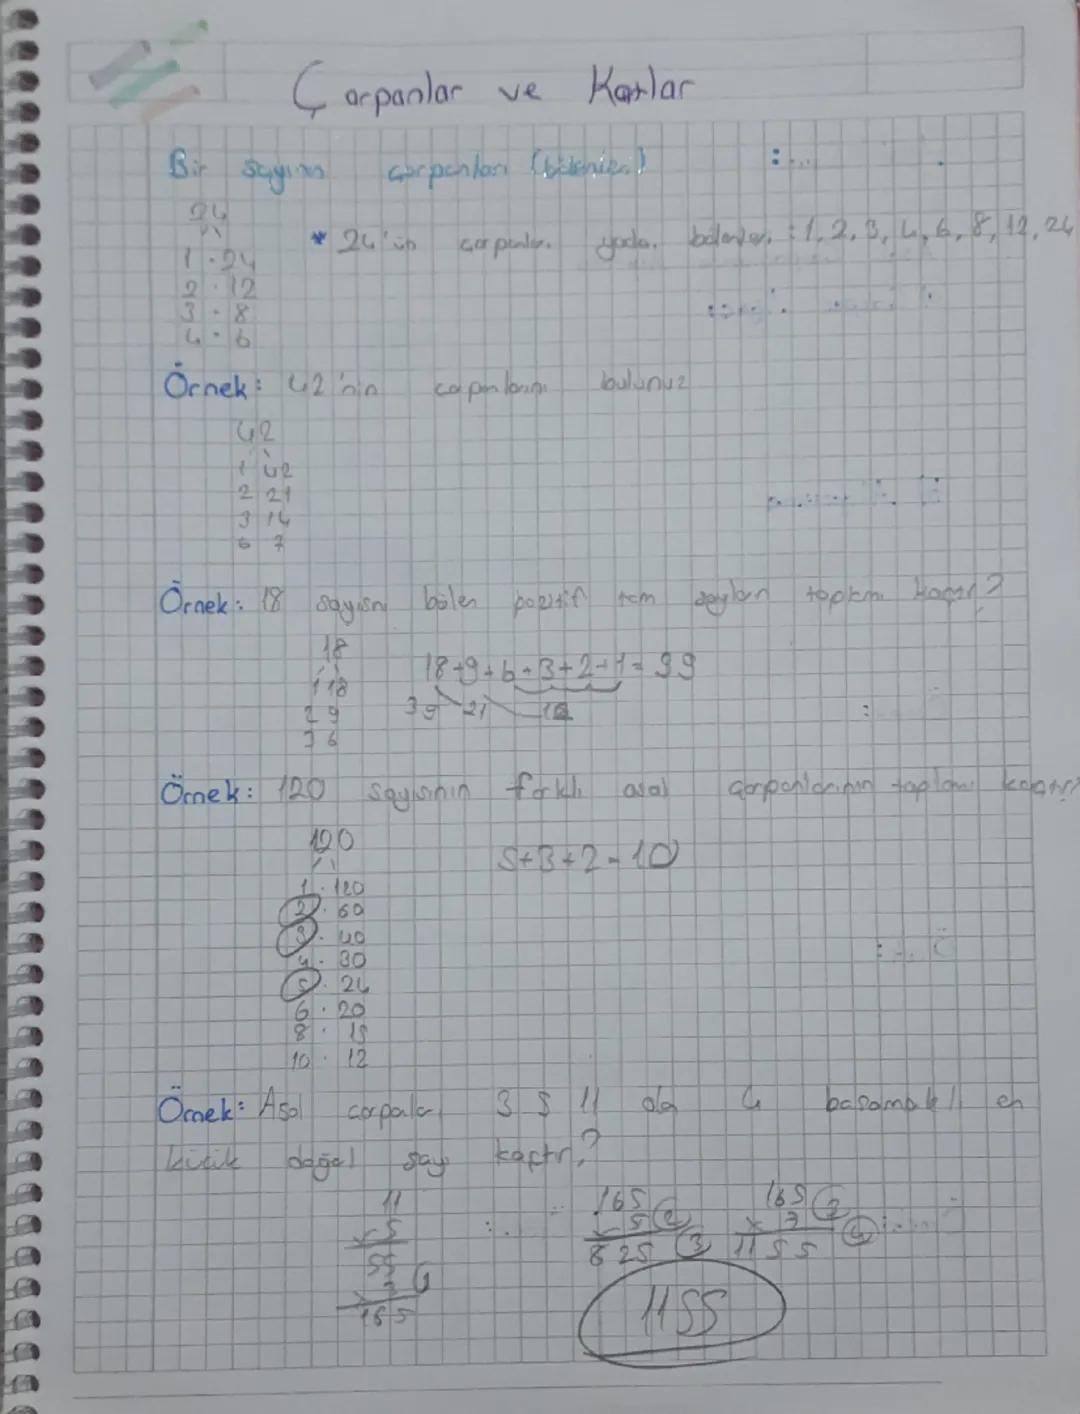 Çarpanlar ve Katlar
Bir sayının çarpanları (bölenleri)
24
1 . 24
2 . 12
3 . 8
4 . 6
* 24'ün çarpanları yada bölenleri : 1, 2, 3, 4, 6, 8, 12, 24
Örnek: 42'nin çarpanlarını bulunuz
42
1 42
2 21
3 14
6 7
Örnek: 18 sayısını bölen pozitif tam sayıların toplamı kaçtır?
18
1 18
2 9
3 6
18+9+6+3+2+1=39
39 21 12
Örnek: 120 sayısının farklı asal çarpanlarının toplamı kaçtır?
120
5+3+2=10
1 . 120
2 . 60
3 . 40
4 . 30
5 . 24
6 . 20
8 . 15
10 . 12
Örnek: Asal çarpanları 3 5 11 olan 4 basamaklı en
küçük doğal sayı kaçtır?
11
x 5
55
x 3 1
165
165
x 5 2
825 3
165 3
x 7
1155 4
1155